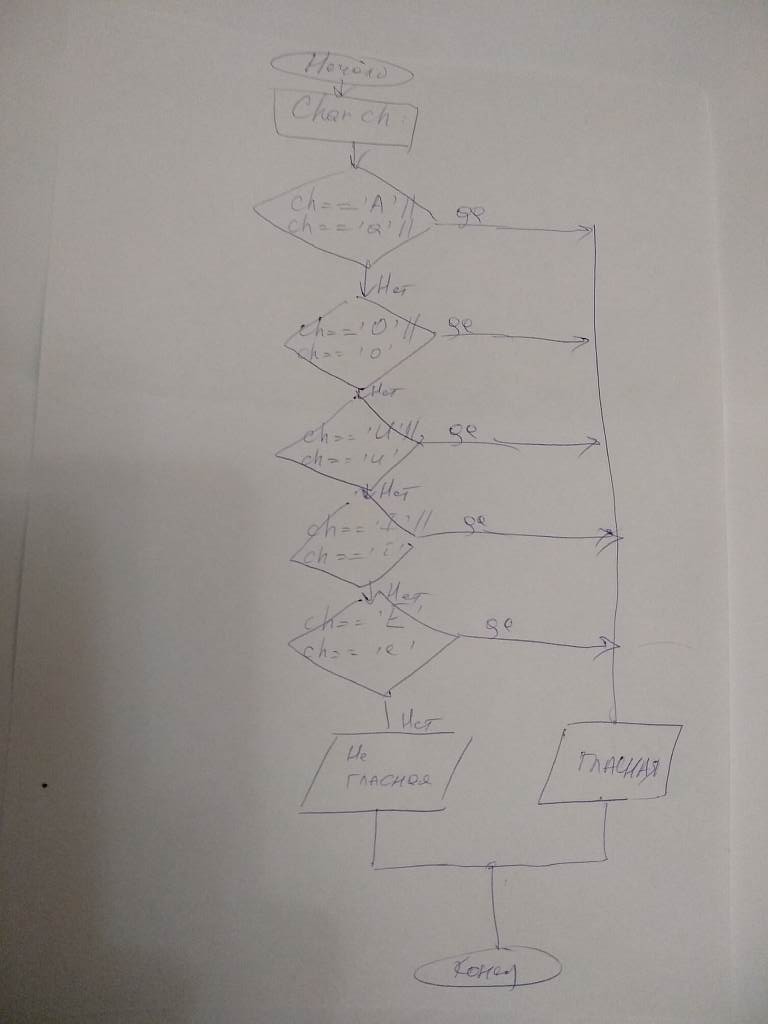 Начало
Char ch;
ch=='A'||
ch=='a'||
да
Нет
ch=='O'||
ch=='o'
да
Нет
ch=='U'||
ch=='u'
да
Нет
ch=='I'||
ch=='i'
да
Нет
ch=='E'
ch=='e'
да
Нет
Не
гласная
гласная
Конец